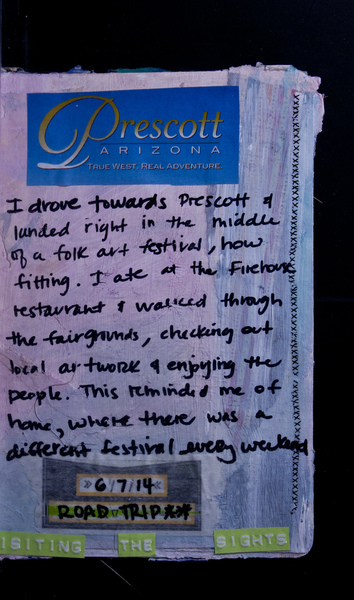 Prescott
ARIZONA
TRUE WEST. REAL ADVENTURE.
I drove towards Prescott &
landed right in the middle
of a folk art festival, how
fitting. I ate at the Firehouse
restaurant & walked through
the fairgrounds, checking out
local artwork & enjoying the
people. This reminded me of
home, where there was a
different festival every weekend
6/7/14
ROAD TRIP
ISITING THE SIGHTS